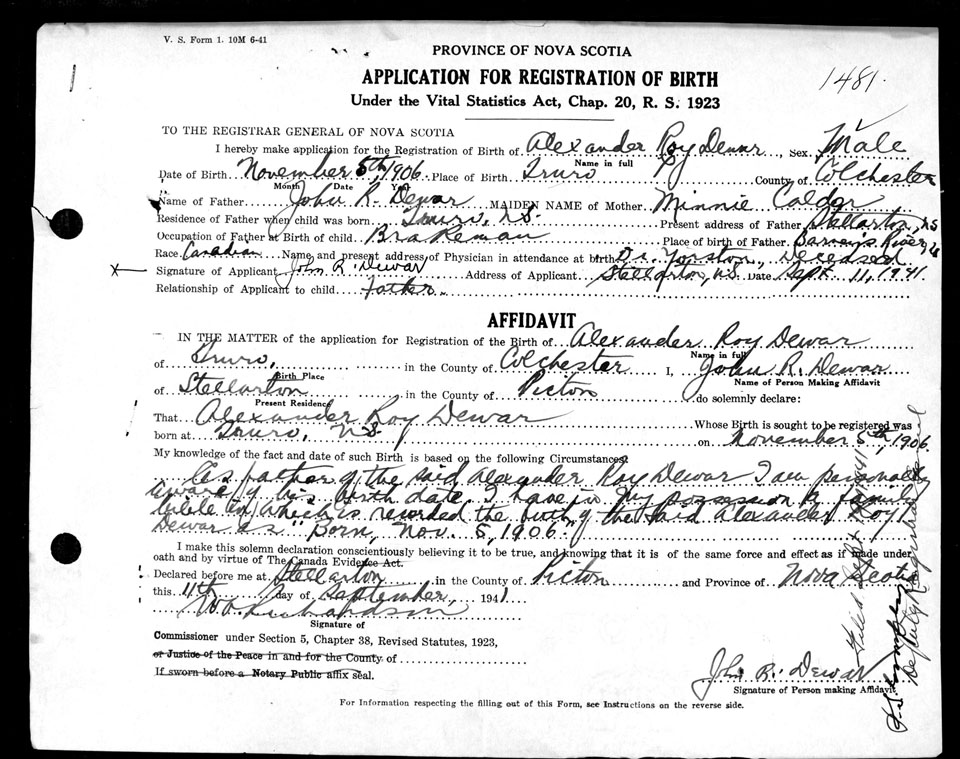 V. S. Form 1. 10M 6-41
PROVINCE OF NOVA SCOTIA
APPLICATION FOR REGISTRATION OF BIRTH
1481.
Under the Vital Statistics Act, Chap. 20, R. S. 1923
TO THE REGISTRAR GENERAL OF NOVA SCOTIA
I hereby make application for the Registration of Birth of Alexander Roy Dewar, Sex Male
Name in full
Date of Birth November 5th, 1906. Place of Birth Truro County of Colchester
Month Date Year
Name of Father John R. Dewar MAIDEN NAME of Mother Minnie Calder
Residence of Father when child was born Truro, N.S. Present address of Father Stellarton, N.S.
Occupation of Father at Birth of child Brakeman Place of birth of Father Barney's River
Race Canadian Name and present address of Physician in attendance at birth Dr. Yorston, Deceased
Signature of Applicant John R. Dewar Address of Applicant Stellarton, N.S. Date Sept. 11, 1941.
Relationship of Applicant to child father.
AFFIDAVIT
IN THE MATTER of the application for Registration of the Birth of Alexander Roy Dewar
Name in full
of Truro, in the County of Colchester I, John R. Dewar
Birth Place Name of Person Making Affidavit
of Stellarton in the County of Picton do solemnly declare:
Present Residence
That Alexander Roy Dewar Whose Birth is sought to be registered was
born at Truro, N.S. on November 5th, 1906
My knowledge of the fact and date of such Birth is based on the following Circumstances:
As father of the said Alexander Roy Dewar I am personally
aware of his birth date. I have in my possession a family
bible in which is recorded the birth of the said Alexander Roy
Dewar as "Born, Nov. 5, 1906."
I make this solemn declaration conscientiously believing it to be true, and knowing that it is of the same force and effect as if made under
oath and by virtue of The Canada Evidence Act.
Declared before me at Stellarton in the County of Picton and Province of Nova Scotia
this 11th day of September, 1941
Richardson
Signature of
Commissioner under Section 5, Chapter 38, Revised Statutes, 1923,
or Justice of the Peace in and for the County of
If sworn before a Notary Public affix seal.
Jh. R. Dewar
Signature of Person making Affidavit
For Information respecting the filling out of this Form, see Instructions on the reverse side.
Filed Sept 1941
Deputy Registrar General